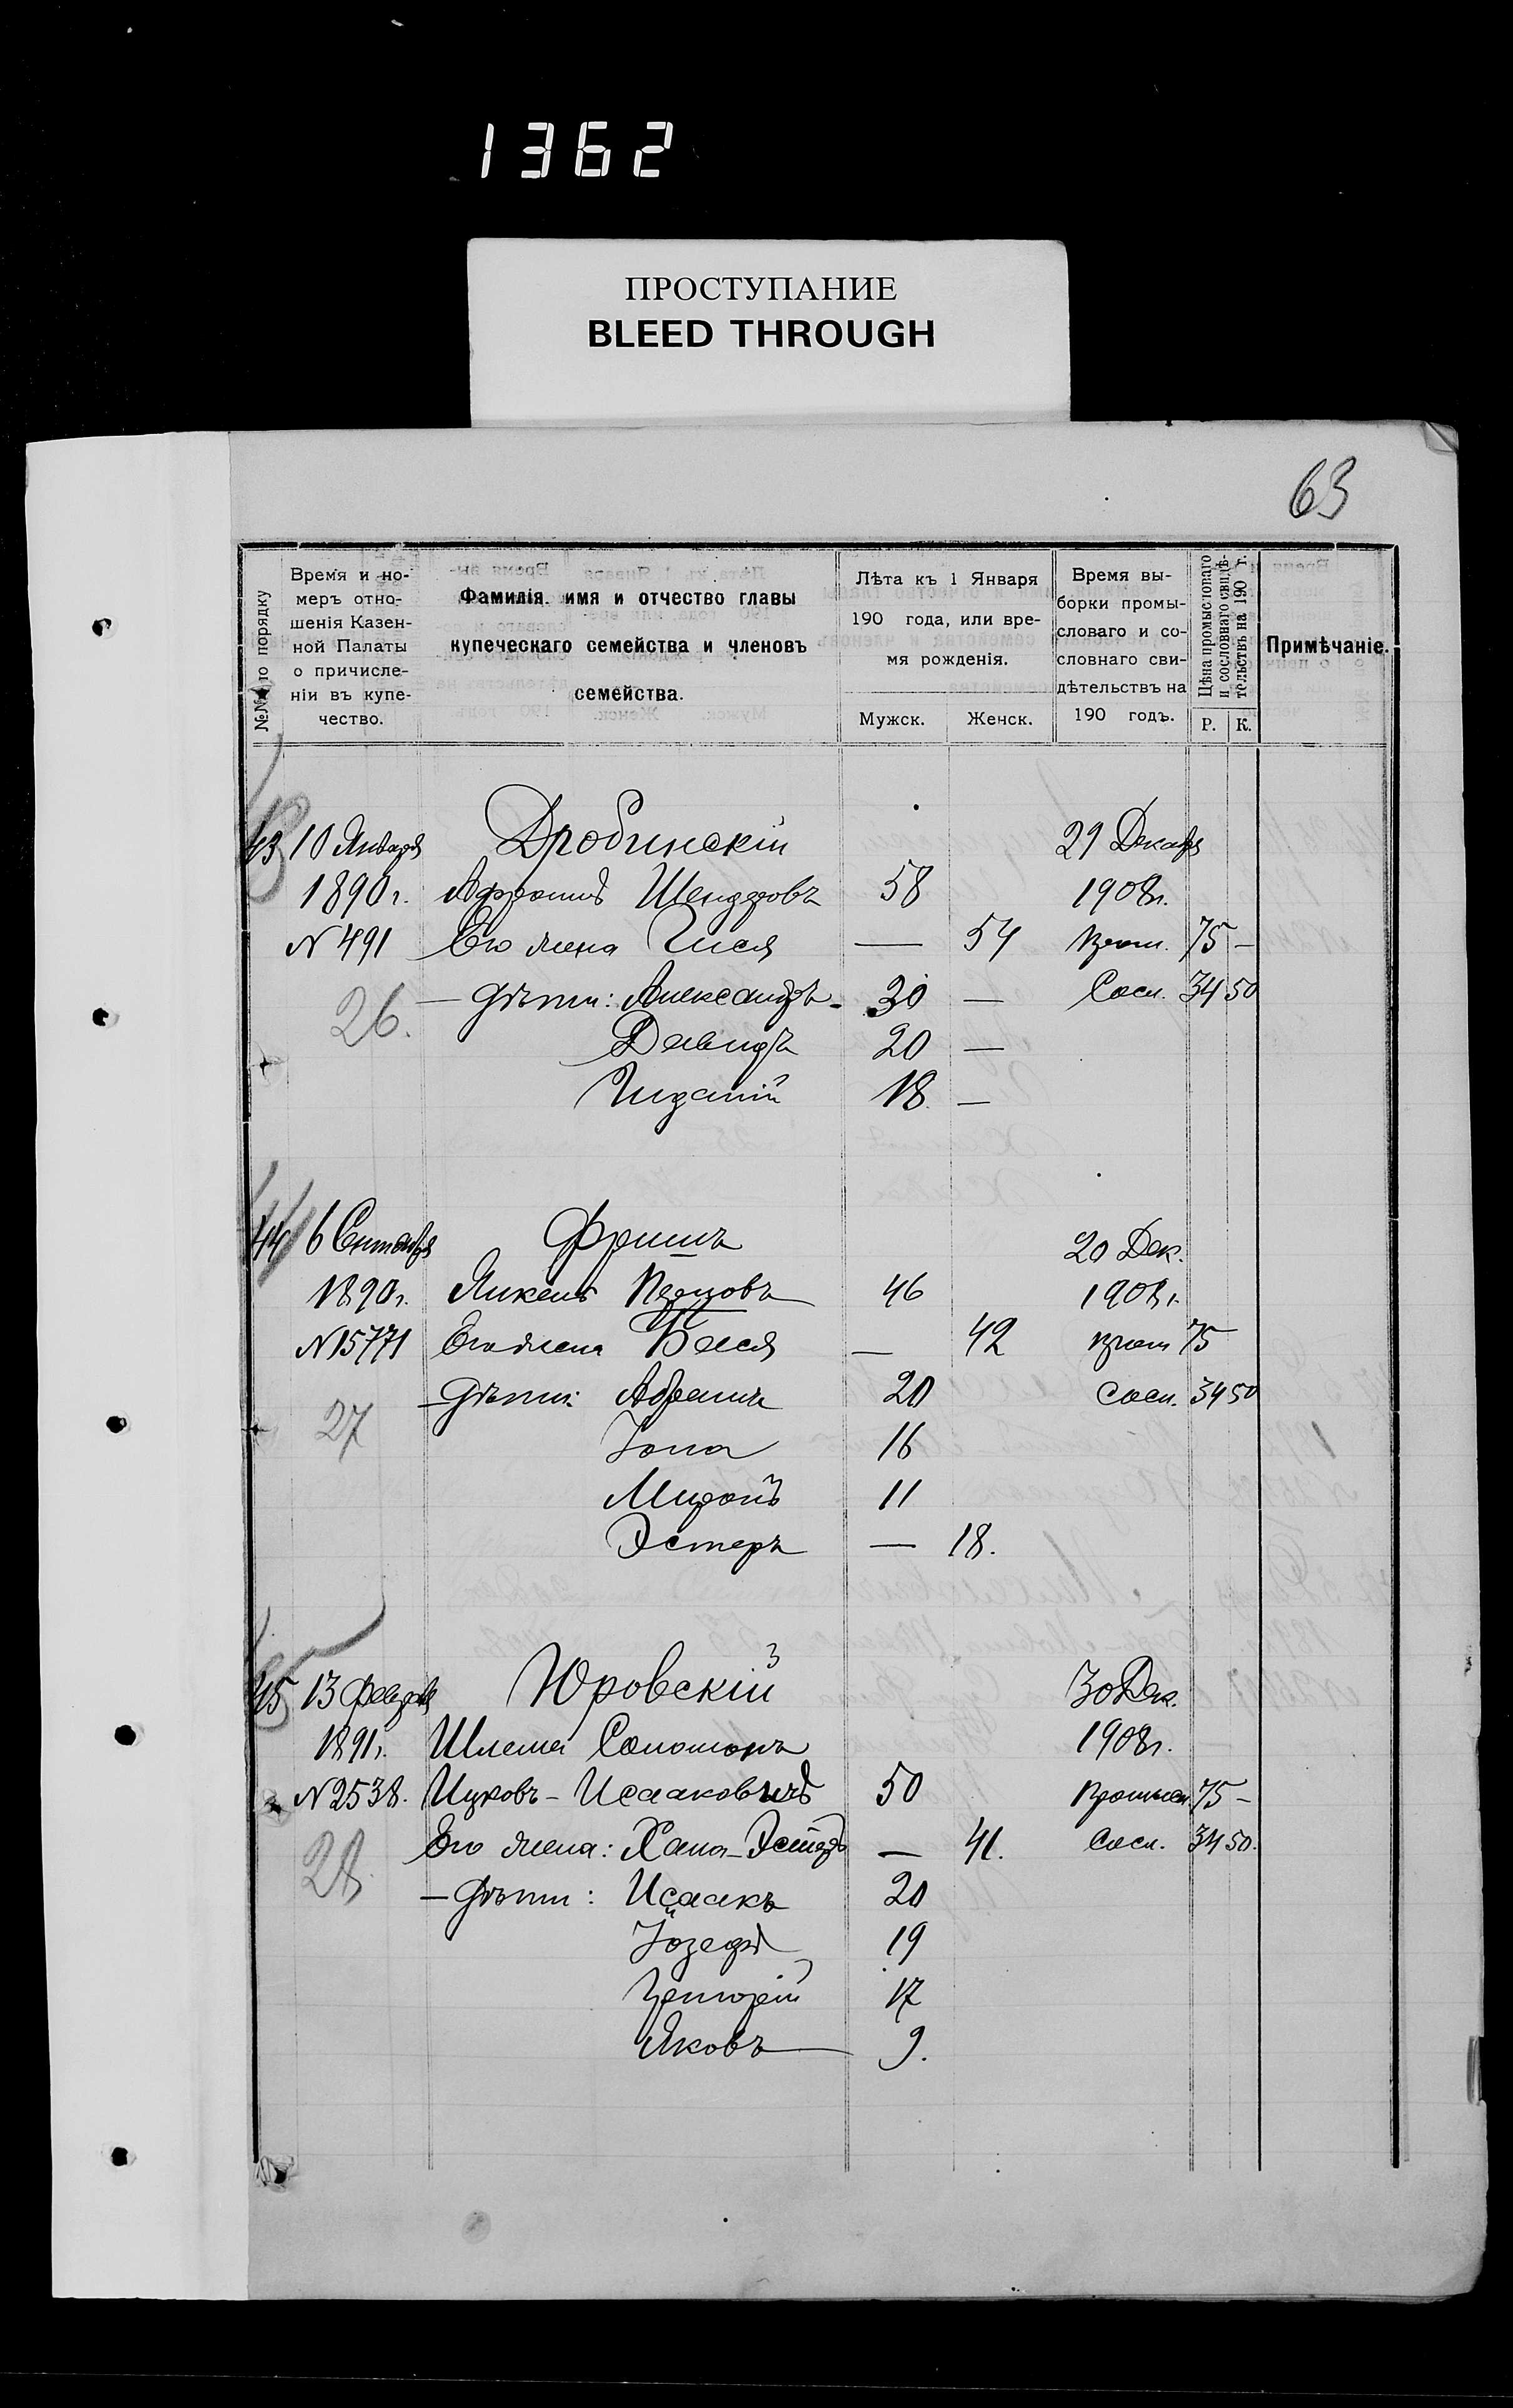 1362
ПРОСТУПАНИЕ
BLEED THROUGH
63
№№ по порядку
Время и но-
меръ отно-
шенія Казен-
ной Палаты
о причисле-
ніи въ купе-
чество.
Фамилія. имя и отчество главы
купеческаго семейства и членовъ
семейства.
Лѣта къ 1 Января
190 года, или вре-
мя рожденія.
Мужск. Женск.
Время вы-
борки промы-
словаго и со-
словнаго сви-
дѣтельствъ на
190 годъ.
Цѣна промысловаго
и сословнаго свидѣ-
тельствъ на 190 г.
Р. К.
Примѣчаніе.
43 10 Января Дробинскій 29 Декабря
1890 г. Абрамъ Шендеровъ 58 1908 г.
N 491 Его жена Гися — 54 Пром. 75 —
26. — Дѣти: Александръ 30 — Сосл. 34 50
Давидъ 20 —
18 —
44 6 Сентября Фришъ 20 Дек.
1890 г. Янкель Перцовъ 46 1908 г.
N 15771 Его жена Бася — 42 Пром 75
27 — Дѣти: Абрамъ 20 Сосл. 34 50
Іона 16
Миронъ 11
Эстеръ — 18.
45 13 Февраля Юровскій 30 Дек.
1891 г. Шлема Соломонъ 1908 г.
N 2538. Ицковъ - Исааковичъ 50 Промысл 75 —
28. Его жена: Хана-Эстеръ — 41. Сосл. 34 50.
— Дѣти: Исаакъ 20
Іозефъ 19
Григорій 17
Яковъ 9.